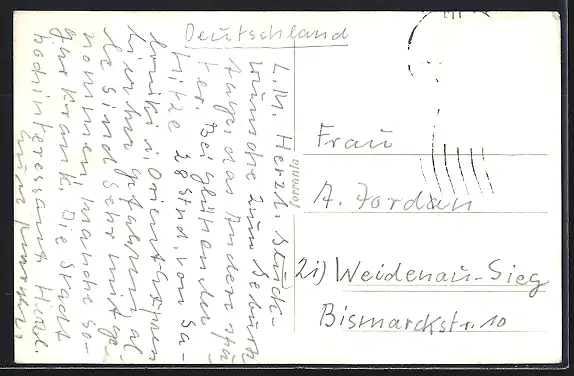 Deutschland
L. M. Herzl. Glück-
wünsche zum Geburts
tage, das Andere spä
ter. Bei glühender
Hitze 28 Std. von Sa-
loniki i. Orient-Expreß
hierher gefahren, al
le sind sehr mitge-
nommen, manche so-
gar krank. Die Stadt
hochinteressant. Herzl.
Forrania
Frau
A. Jordan
21) Weidenau-Sieg
Bismarckstr. 10